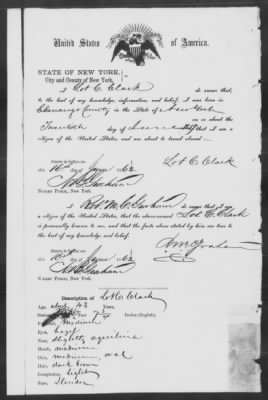 United States of America.
STATE OF NEW YORK,
City and County of New York.
I Lot C. Clark do swear that
to the best of my knowledge, information, and belief, I was born in
Chenango County in the State of New York
on or about the
day of that I am a
citizen of the United States, and am about to travel abroad.
Sworn to before me
this 16th day of June 1862
Lot C. Clark
NOTARY PUBLIC, NEW YORK.
I swear that I am a
citizen of the United States, that the above-named Lot C. Clark
is personally known to me, and that the facts above stated by him are true to
the best of my knowledge and belief.
Sworn to before me
this 16th day of June 1862
NOTARY PUBLIC, NEW YORK.
Description of Lot C Clark
Age, about 43 Years,
Stature, Feet Inches (English),
Forehead, Medium
Eyes, hazel
Nose, slightly aquiline
Mouth, medium
Chin, medium, oval
Hair, dark brown
Complexion, light
Face, Slender